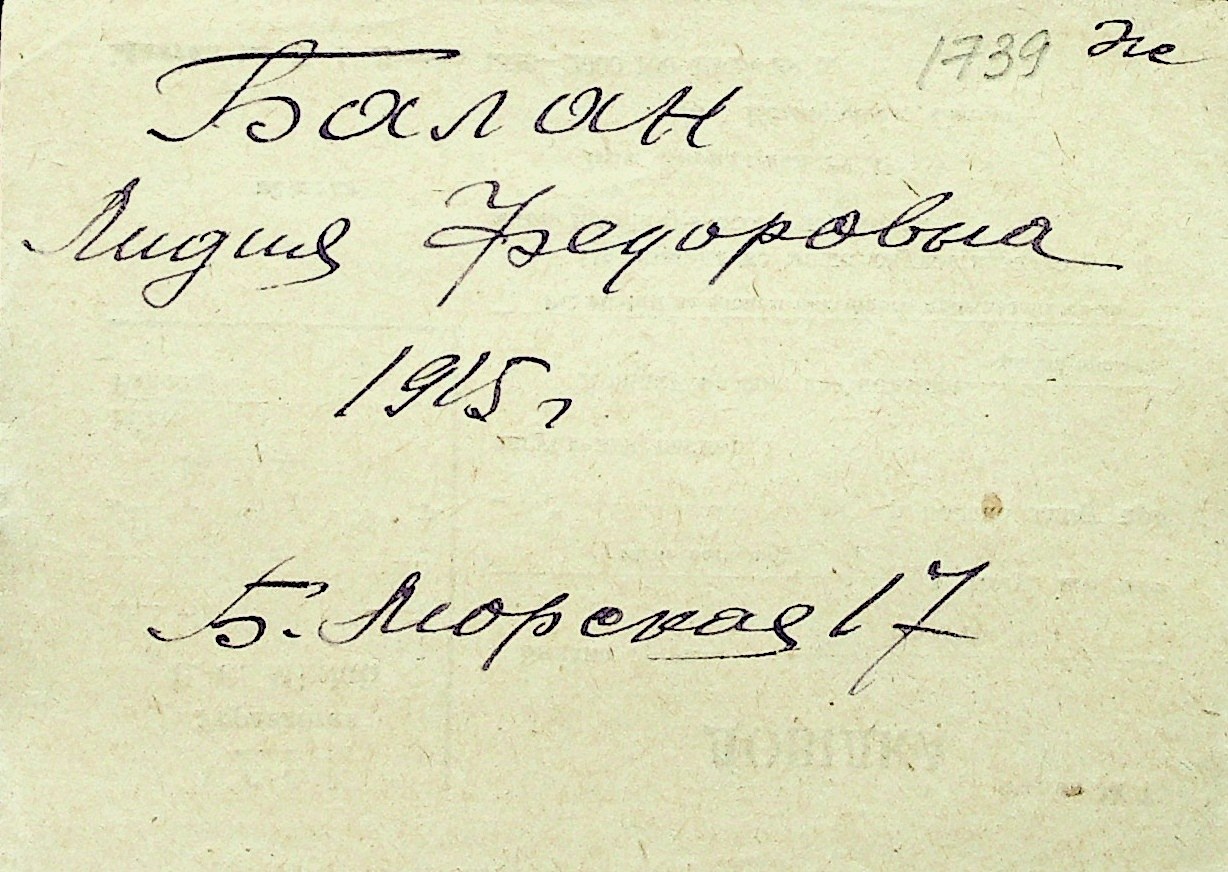 1739 же
Балан
Лидия Федоровна
1915 г
Б. Морская 17